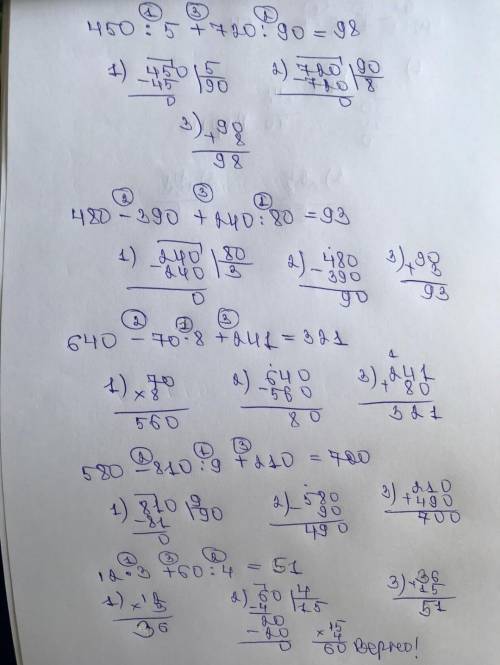 ① ③ ②
450 : 5 + 720 : 90 = 98
1) 450 | 5 2) 720 | 90
- 45 | 90 - 720 | 8
0 0
3) + 90
8
98
② ③ ①
480 - 390 + 240 : 80 = 93
1) 240 | 80 2) 480 3) + 90
- 240 | 3 - 390 3
0 90 93
② ① ③
640 - 70 · 8 + 241 = 321
1) 70 2) 640 3) 241
× 8 - 560 + 80
560 80 321
② ① ③
580 - 810 : 9 + 210 = 700
1) 810 | 9 2) 580 3) 210
- 81 | 90 - 90 + 490
0 490 700
① ③ ②
12 · 3 + 60 : 4 = 51
1) × 12 2) 60 | 4 3) + 36
3 - 4 | 15 15
36 20 51
- 20 × 15
0 4
60 Верно!